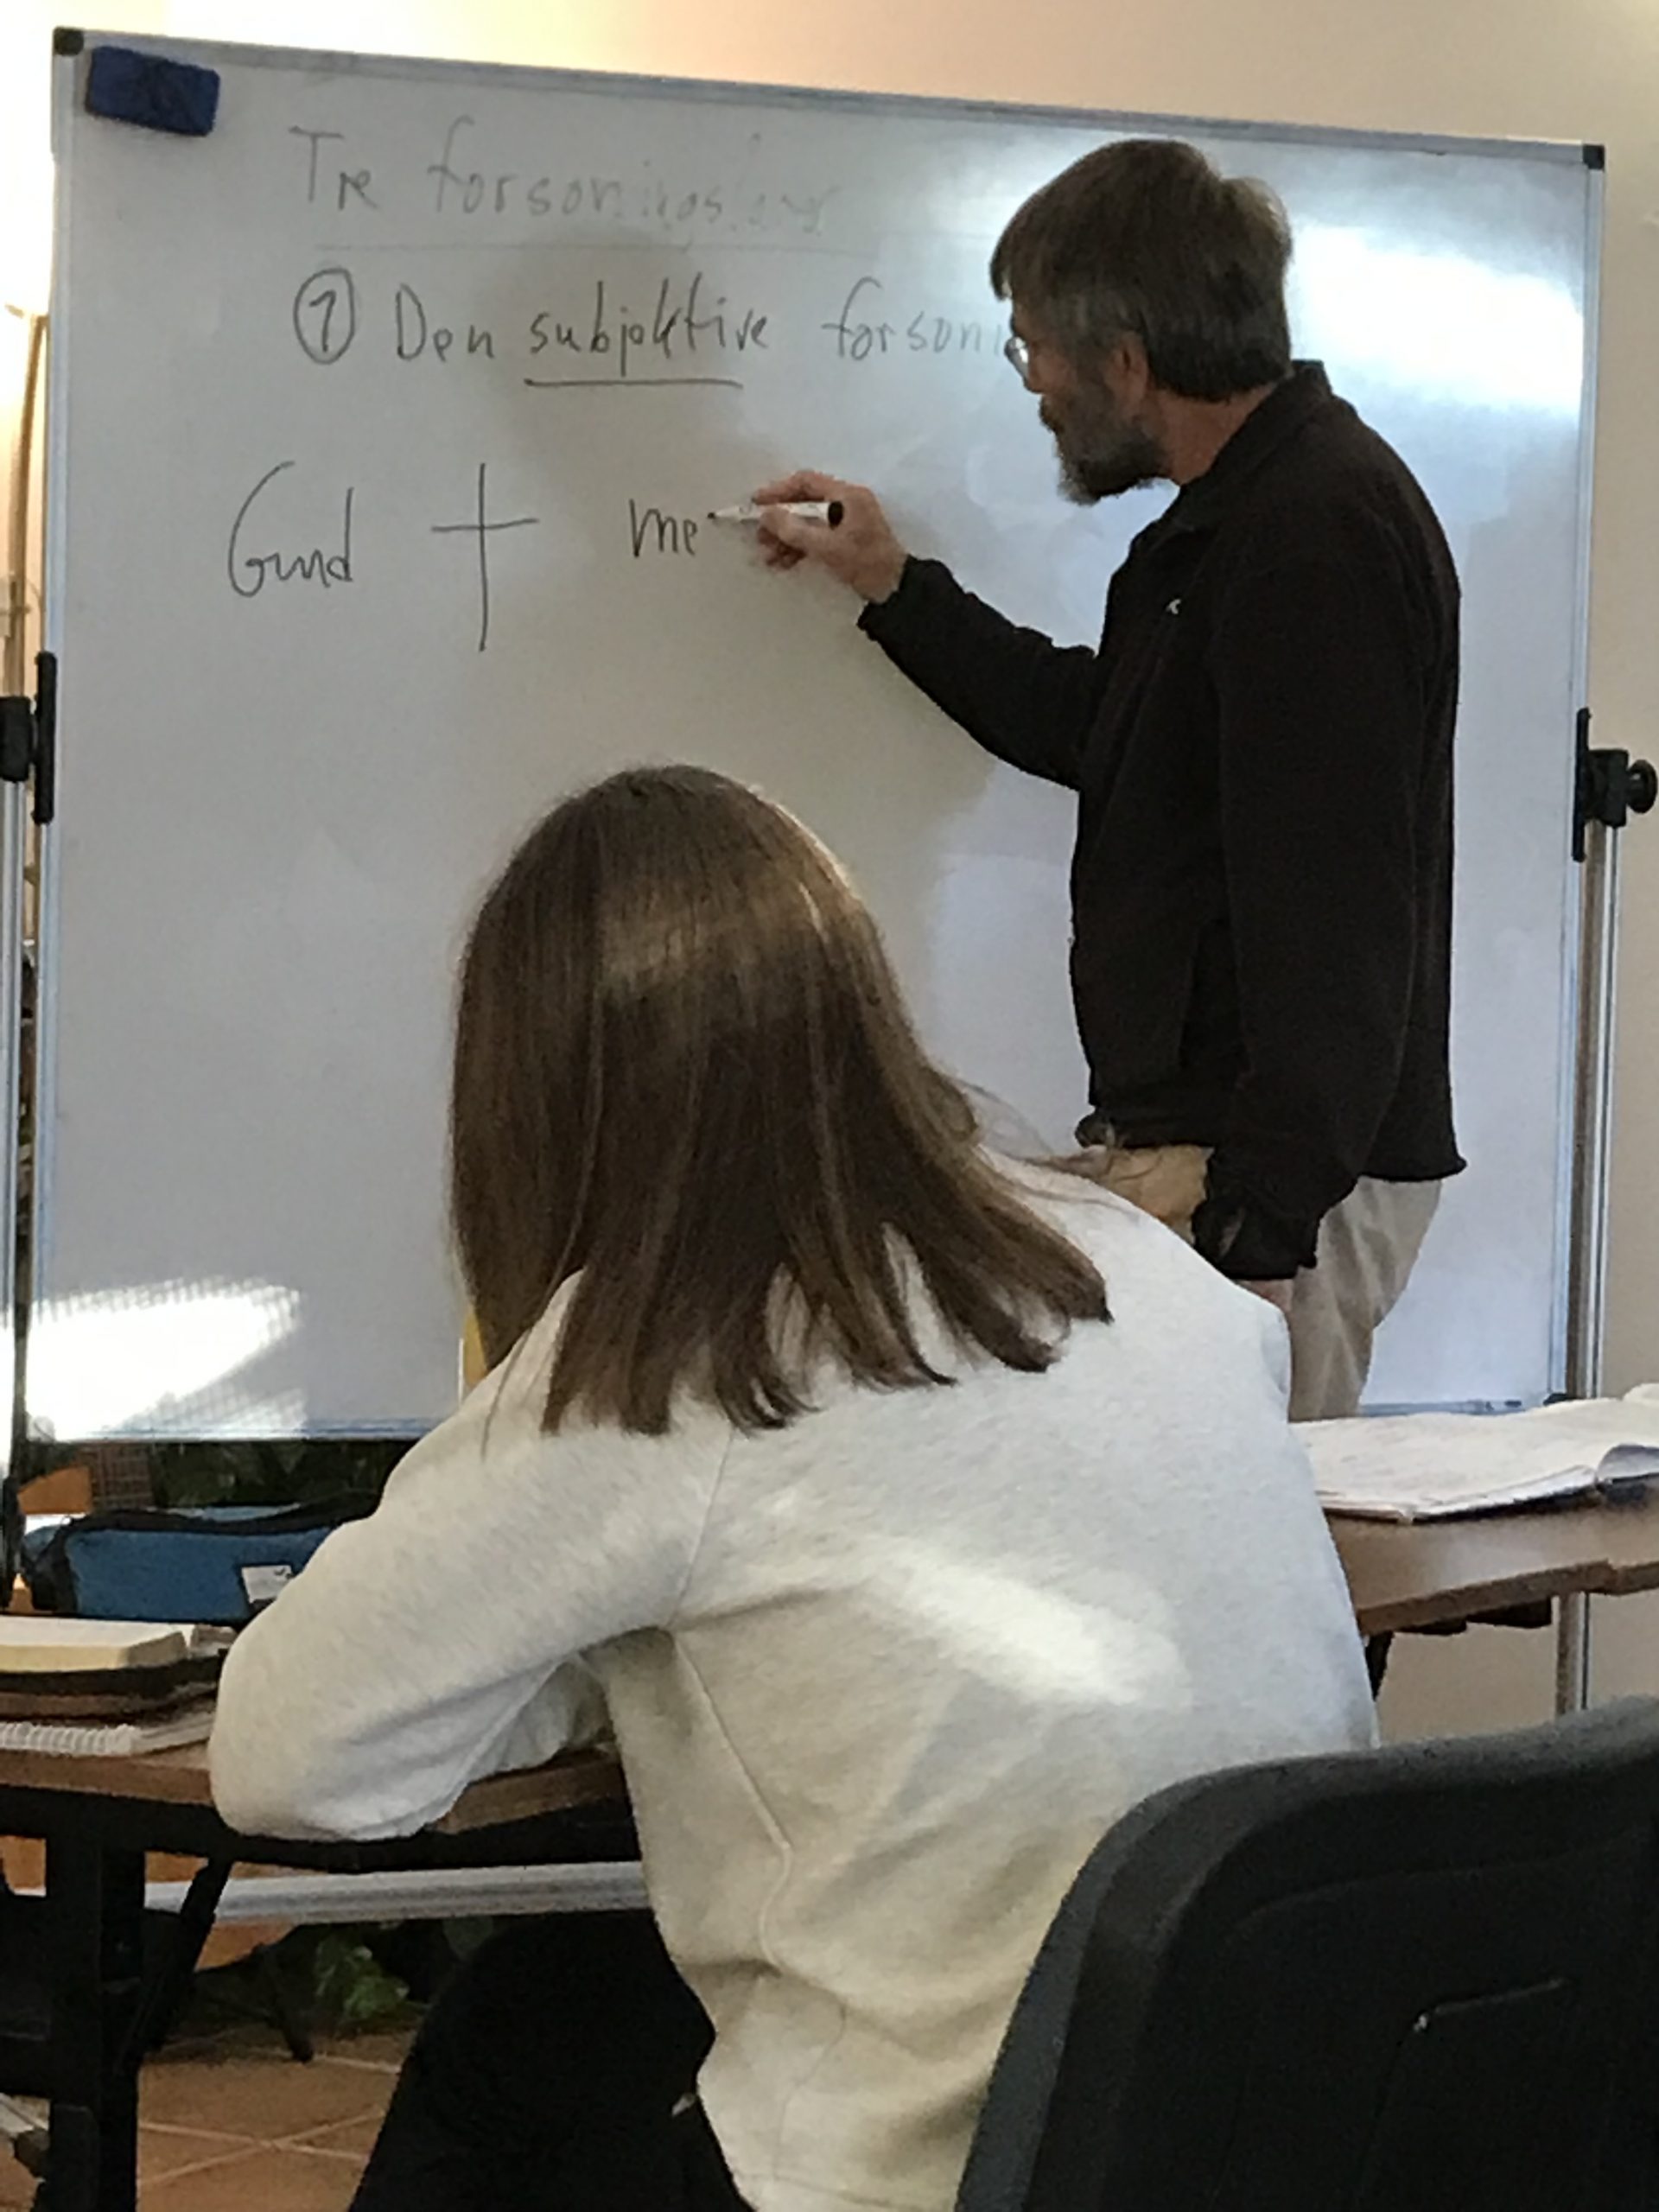 Tre forsoningslær
① Den subjektive forsoni
Gud + me